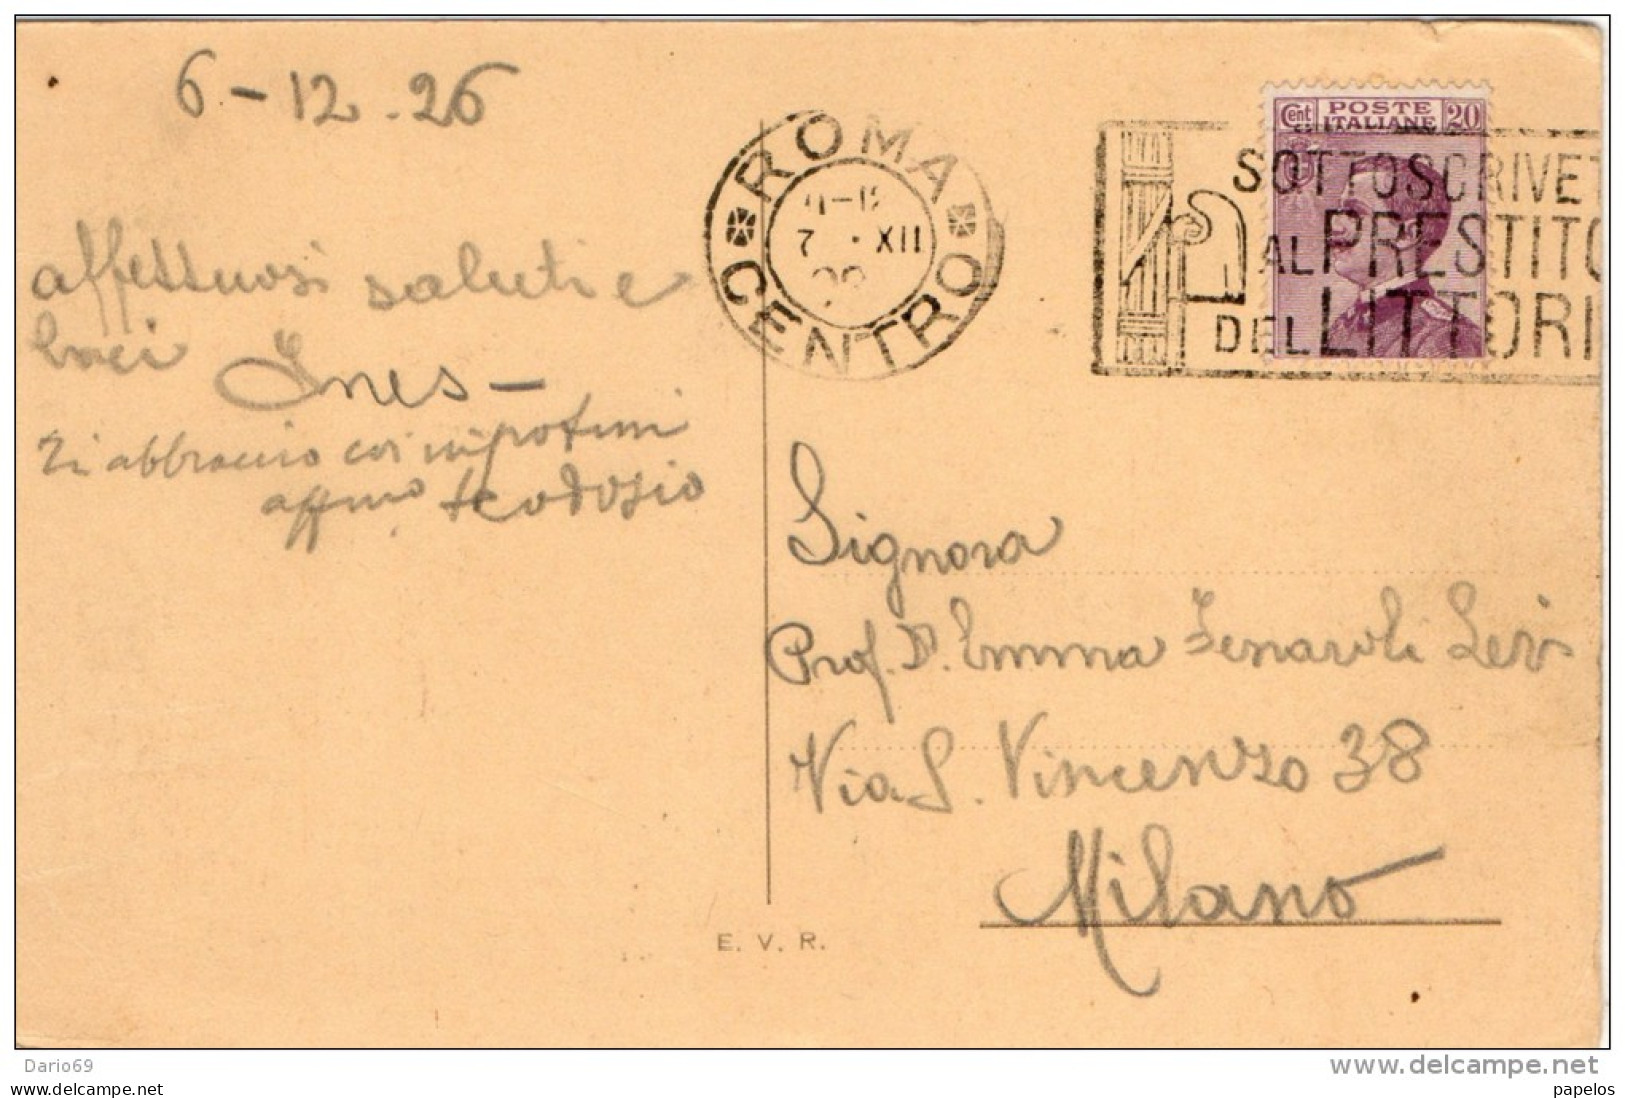 6-12.26
affettuosi saluti e
baci
Ines-
Ti abbraccio coi nipotini
affmo teodosio
ROMA
CENTRO
7 . XII
Cent POSTE ITALIANE 20
SOTTOSCRIVET
AL PRESTITO
DEL LITTORI
Signora
Prof. D. Emma Fenaroli Levi
Via S. Vincenzo 38
Milano
E. V. R.
Dario69
www.delcampe.net
papelos.net
papelos